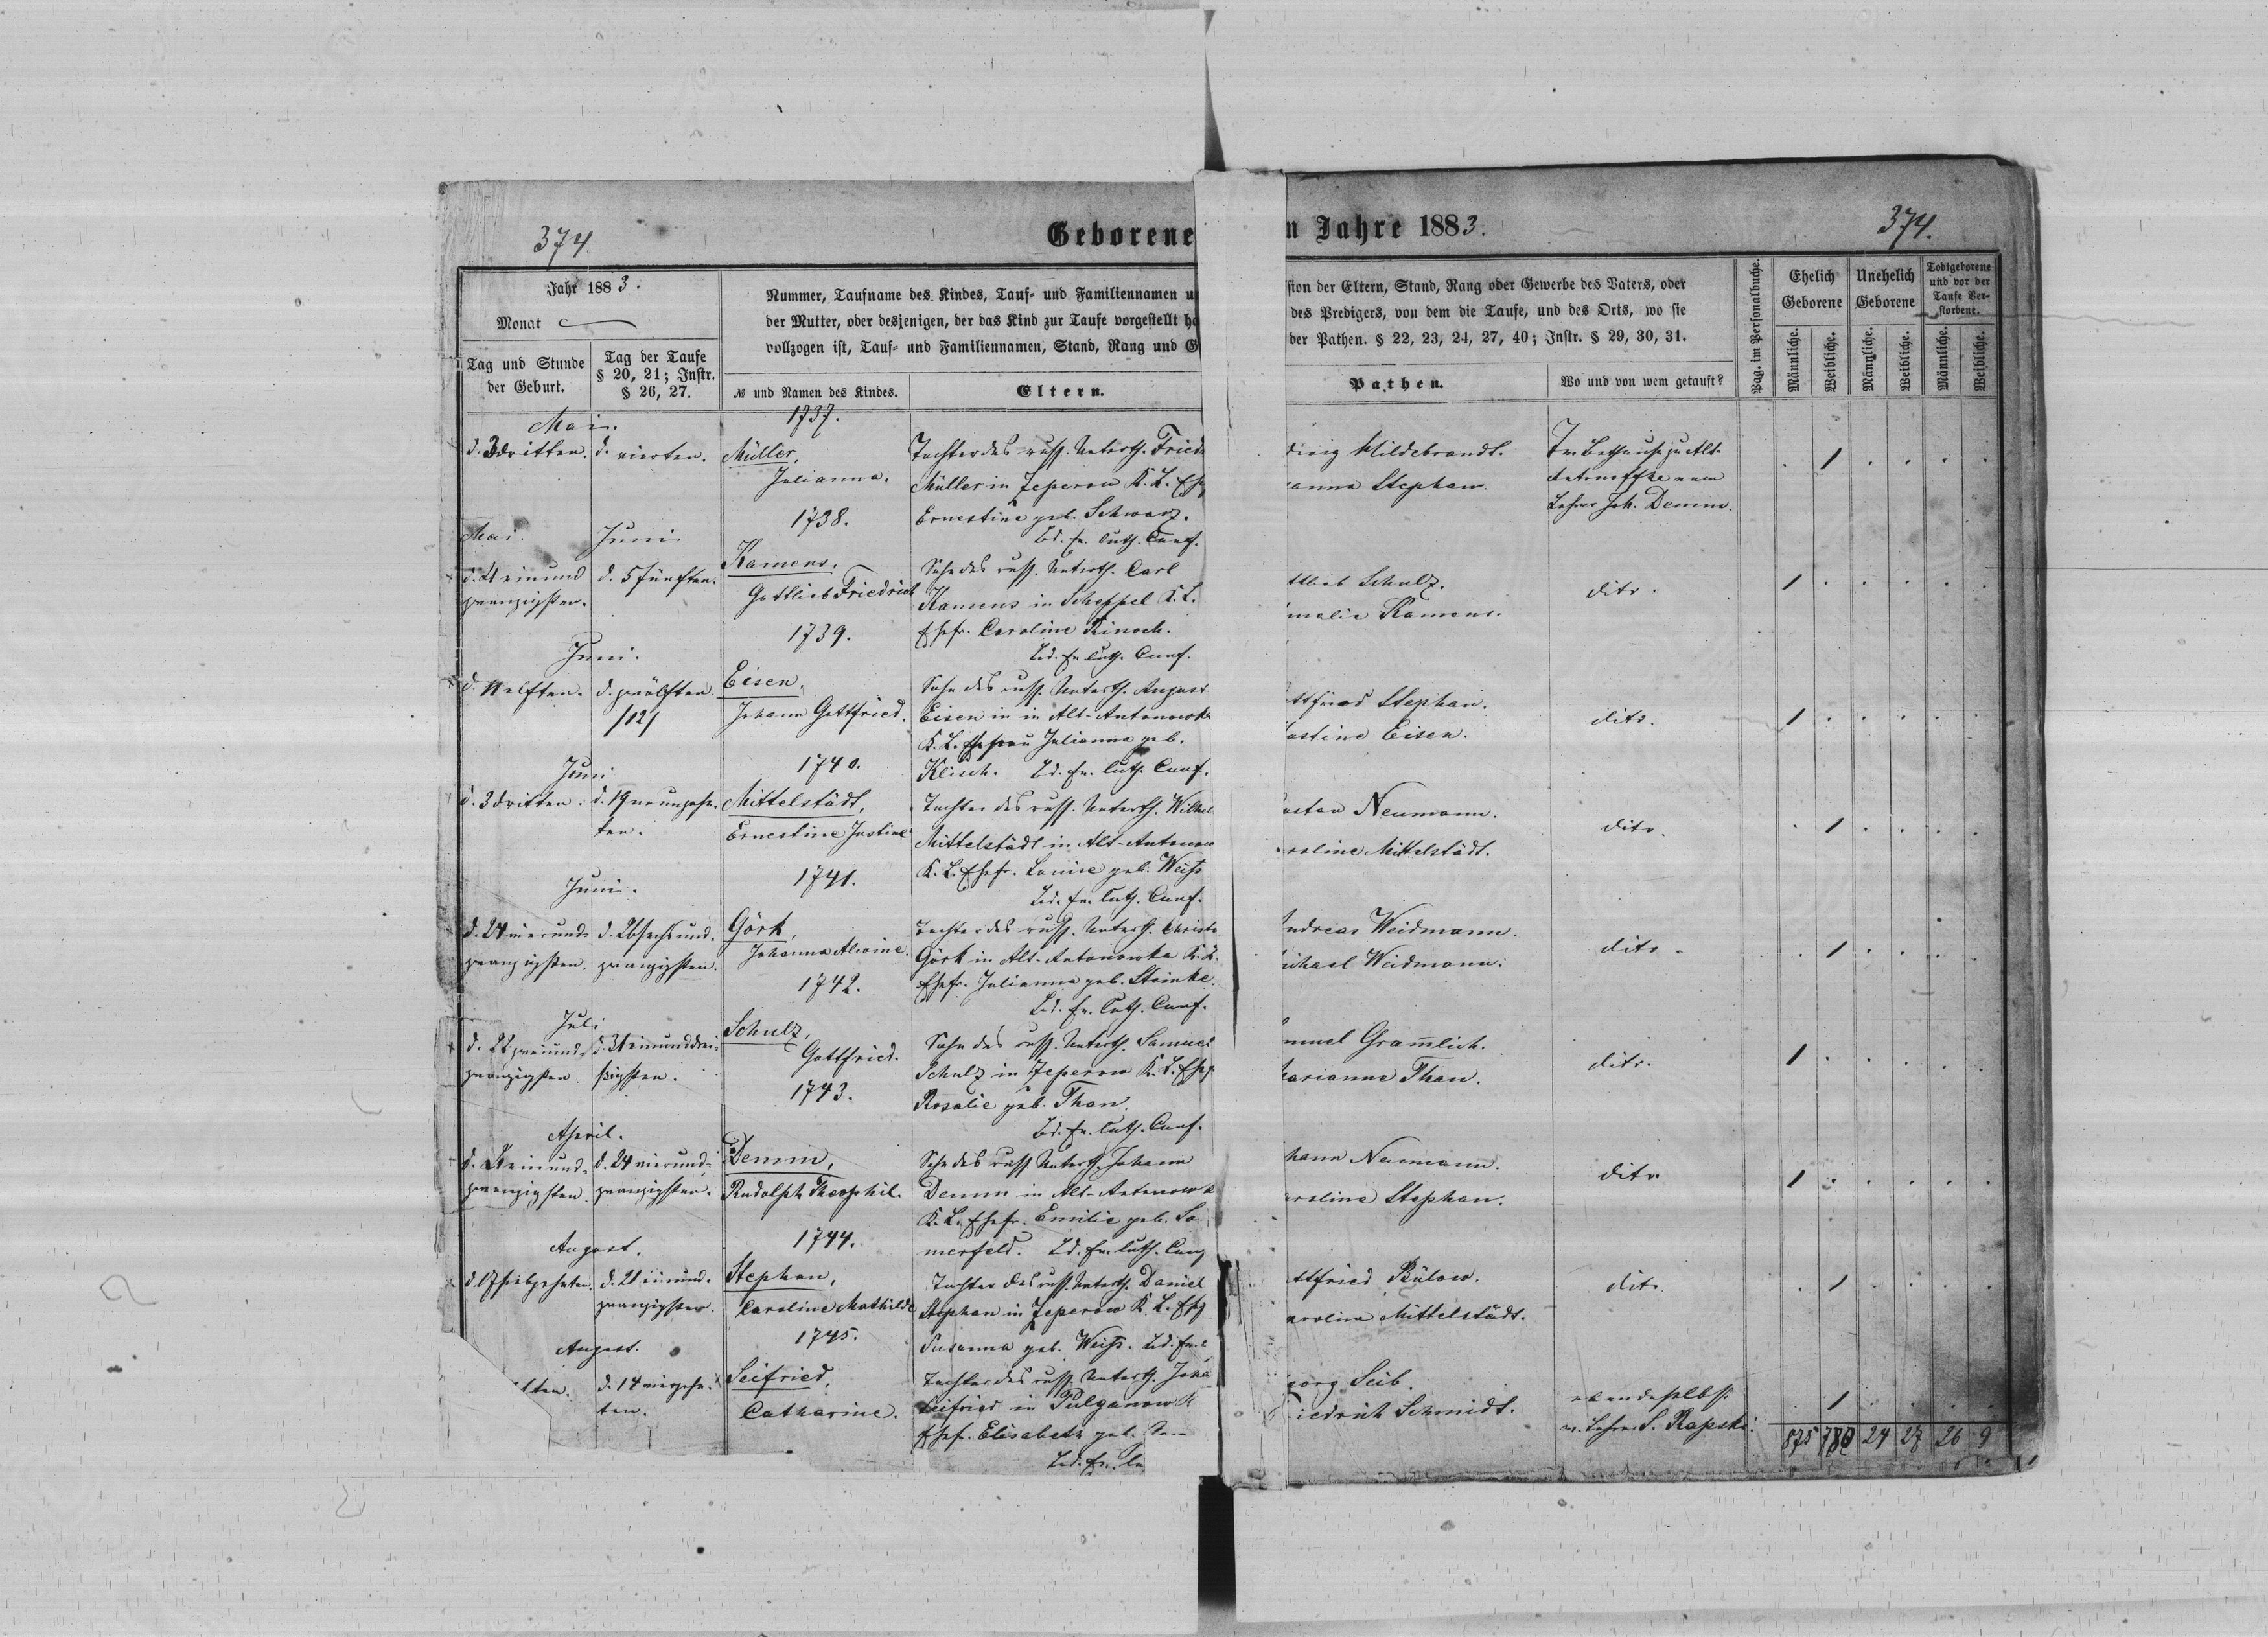 374
Geborene
n Jahre 1883.
374.
Jahr 1883.
Monat
Tag und Stunde
der Geburt.
Tag der Taufe
§ 20, 21; Instr.
§ 26, 27.
Nummer, Taufname des Kindes, Tauf- und Familiennamen u
der Mutter, oder desjenigen, der das Kind zur Taufe vorgestellt ha
vollzogen ist, Tauf- und Familiennamen, Stand, Rang und G
№ und Namen des Kindes.
Eltern.
sion der Eltern, Stand, Rang oder Gewerbe des Vaters, oder
des Predigers, von dem die Taufe, und des Orts, wo sie
der Pathen. § 22, 23, 24, 27, 40; Instr. § 29, 30, 31.
Pathen.
Wo und von wem getauft?
Pag. im Personalbuche.
Ehelich
Geborene
Unehelich
Geborene
Todtgeborene
und vor der
Taufe Ver-
storbene.
Männliche.
Weibliche.
Männliche.
Weibliche.
Männliche.
Weibliche.
Mai.
d. 3 dritten.
d. vierten.
1737.
Müller,
Julianna.
Tochter des russ. Unterth. Friedr
Müller in Zeperow K. L. Ehe
Ernestine geb. Schwarz.
Bd. ev. luth. Conf.
Hildebrandt.
anna Stephan.
Im Bethause zu Alt-
Antonoffka vom
Lehrer Joh. Demm.
1
Mai.
Juni
d. 21 einund
zwanzigsten.
d. 5 fünften.
1738.
Kamens,
Gottlieb Friedrich
Sohn des russ. Unterth. Carl
Kamens in Scheppel K. L.
Ehefr. Caroline Rinoch.
Bd. ev. luth. Conf.
ttlieb Schulz.
malie Kamens.
dito.
1
Juni.
d. 11 elften.
d. zwölften.
/12/
1739.
Eisen,
Johann Gottfried.
Sohn des russ. Unterth. August
Eisen in in Alt-Antonowka
K. L. Ehefrau Julianna geb.
Klisch. Bd. ev. luth. Conf.
ttfried Stephan.
ustine Eisen.
dito.
1
Juni
d. 3 dritten.
d. 19 neunzehn-
ten.
1740.
Mittelstädt,
Ernestine Justine
Tochter des russ. Unterth. Wilhel
Mittelstädt in Alt-Antonow
K. L. Ehefr. Louise geb. Weiss
Bd. ev. luth. Conf.
ustav Neumann.
roline Mittelstädt.
dito.
1
Juni.
d. 24 vierund-
zwanzigsten.
d. 26 sechsund-
zwanzigsten.
1741.
Görk,
Johanna Alwine.
Tochter des russ. Unterth. Christo
Görk in Alt-Antonowka K. L.
Ehefr. Julianna geb. Steinke.
Bd. ev. luth. Conf.
ndreas Weidmann.
ichael Weidmann.
dito.
1
Juli
d. 22 zweiund-
zwanzigsten.
d. 31 einunddrei-
ßigsten.
1742.
Schulz,
Gottfried.
Sohn des russ. Unterth. Samuel
Schulz in Zeperow K. L. Ehef
Rosalie geb. Than.
Bd. ev. luth. Conf.
muel Gramlich.
arianne Than.
dito.
1
April.
d. 21 einund-
zwanzigsten.
d. 24 vierund-
zwanzigsten.
1743.
Demm,
Rudolph Theophil.
Sohn des russ. Unterth. Johann
Demm in Alt-Antonowk
K. L. Ehefr. Emilie geb. So
merfeld. Bd. ev. luth. Conf
hann Neumann.
roline Stephan.
dito
1
August.
d. 17 siebzehnten.
d. 21 einund-
zwanzigsten.
1744.
Stephan,
Caroline Mathilde
Tochter des russ. Unterth. Daniel
Stephan in Zeperow K. L. Ehf
Susanna geb. Weiss. Bd. ev. l
ttfried Bülow.
arolina Mittelstädt.
dito
1
August.
lten.
d. 14 vierzehn-
ten.
1745.
Seifried,
Catharine.
Tochter des russ. Unterth. Joha
Seifried in Pulganowk
Ehef. Elisabeth geb.
Bd. ev. lu
eorg Seib.
riedrich Schmidt.
ebendaselbst
v. Lehrer S. Rapske.
1
875 780 24 27 26 9